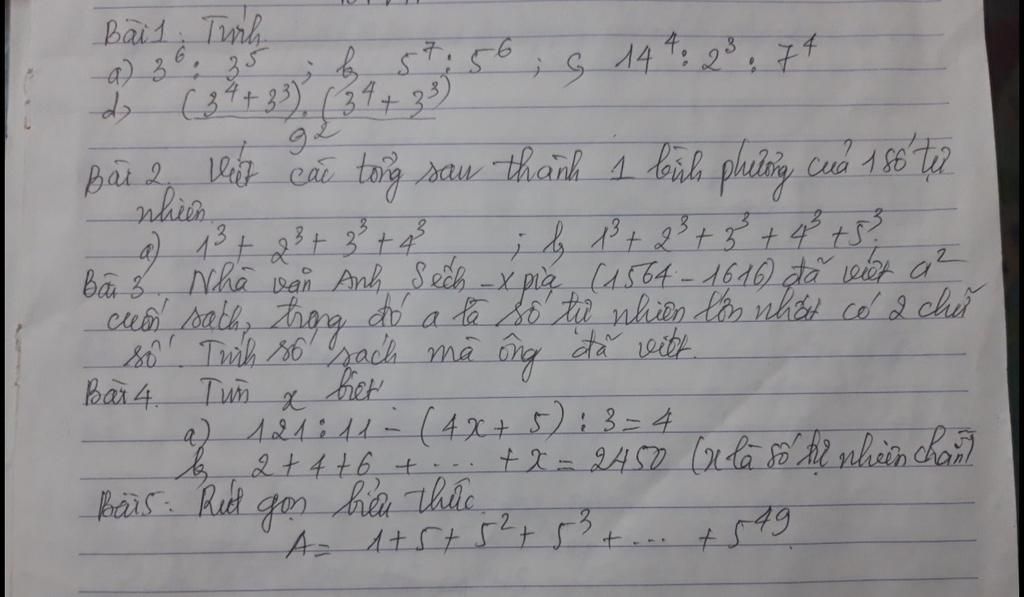 Bài 1: Tính
a) 3⁶ : 3⁵ ; b, 5⁷ : 5⁶ ; c, 14⁴ : 2³ : 7⁴
d, (3⁴ + 3³) . (3⁴ + 3³)
9²
Bài 2. Viết các tổng sau thành 1 bình phương của 1 số tự
nhiên.
a) 1³ + 2³ + 3³ + 4³ ; b, 1³ + 2³ + 3³ + 4³ + 5³.
Bài 3. Nhà văn Anh Sếch - x pia (1564 - 1616) đã viết a²
cuốn sách, trong đó a là số tự nhiên lớn nhất có 2 chữ
số. Tính số sách mà ông đã viết.
Bài 4. Tìm x biết
a) 121 : 11 - (4x + 5) : 3 = 4
b, 2 + 4 + 6 + .... + x = 2450 (x là số tự nhiên chẵn)
Bài 5: Rút gọn biểu thức.
A = 1 + 5 + 5² + 5³ + ... + 5⁴⁹.